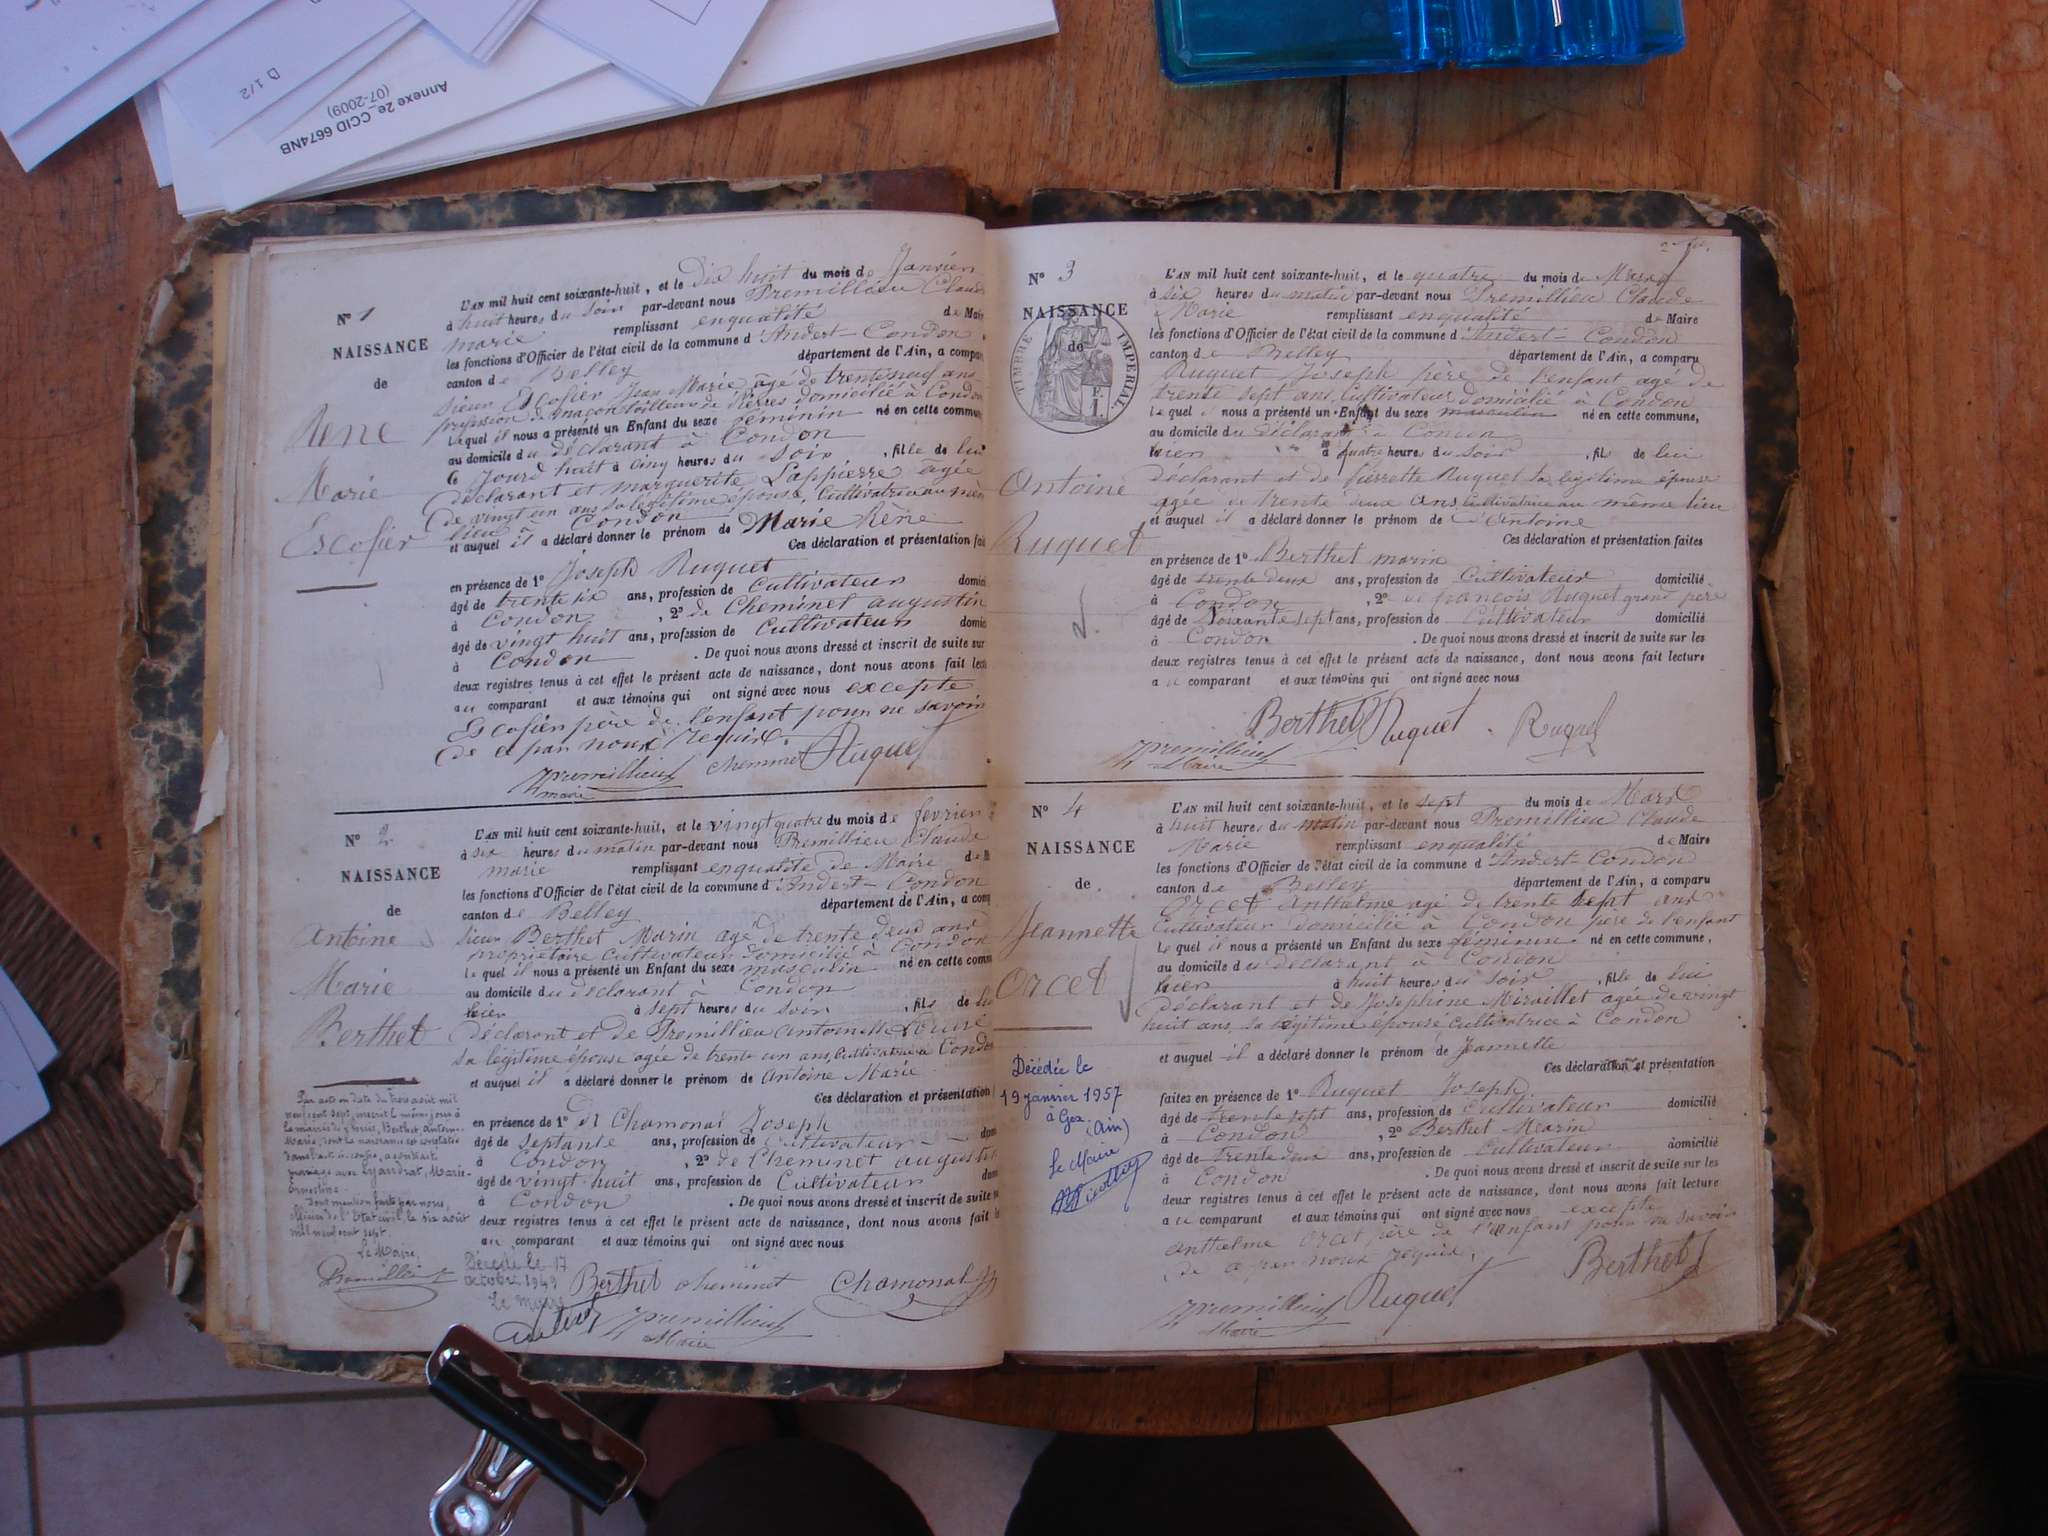 D 1/2
Annexe 2e_CCID 6674NB
(07-2009)
N° 1
NAISSANCE
de
Rene
Marie
Escofier
L'AN mil huit cent soixante-huit, et le Dix huit du mois de Janvier
à huit heures du soir par-devant nous Premillieu Claude
marie remplissant enqualité de Maire
les fonctions d'Officier de l'état civil de la commune d'Andert-Condon
canton de Belley département de l'Ain, a compa
sieur Escofier Jean Marie âgé de trente neuf ans
profession de maçon tailleur de Pierres domicilié à Condon
Lequel il nous a présenté un Enfant du sexe féminin né en cette commune
au domicile du déclarant à Condon
le Jourd huit à cinq heures du soir, fille de lui
déclarant et marguerite Lappierre agée
de vingt un ans sa légitime épouse, Cultivatrice au mème
lieu à Condon
et auquel il a déclaré donner le prénom de Marie Rène
Ces déclaration et présentation fai
en présence de 1° Joseph Ruquet
âgé de trente six ans, profession de Cultivateur domici
à Condon, 2° de Cheminet augustin
âgé de vingt huit ans, profession de Cultivateur domici
à Condon. De quoi nous avons dressé et inscrit de suite sur
deux registres tenus à cet effet le présent acte de naissance, dont nous avons fait lectu
au comparant et aux témoins qui ont signé avec nous excepte
Escofier père de l'enfant pour ne savoir
de ce par nous requis.
Premillieu cheminet Ruquet
maire
N° 2
NAISSANCE
de
Antoine
Marie
Berthet
L'AN mil huit cent soixante-huit, et le vingt quatre du mois de fevrier
à six heures du matin par-devant nous Premillieu Claude
marie remplissant enqualité de Maire de M
les fonctions d'Officier de l'état civil de la commune d'Andert-Condon
canton de Belley département de l'Ain, a comp
sieur Berthet Marin agé de trente deux ans
propriétaire Cultivateur domicilié à Condon
Lequel il nous a présenté un Enfant du sexe masculin né en cette comm
au domicile du déclarant à Condon
hier à sept heures du soir, fils de lui
déclarant et de Premillieu Antoinette Louise
sa légitime épouse agée de trente un ans, Cultivatrice à Condon
et auquel il a déclaré donner le prénom de Antoine Marie
Ces déclaration et présentation
en présence de 1° de Chamonal Joseph
âgé de septante ans, profession de Cultivateur domi
à Condon, 2° de Cheminet augustin
âgé de vingt-huit ans, profession de Cultivateur domi
à Condon. De quoi nous avons dressé et inscrit de suite
deux registres tenus à cet effet le présent acte de naissance, dont nous avons fait le
au comparant et aux témoins qui ont signé avec nous
Berthet cheminet Chamonal
Premillieu
Maire
Par acte en date du trois août mil
neuf cent sept, inscrit le même jour à
la mairie de Berthet, Antoine
Marie, dont la naissance est constatée
dans l'acte ci-contre, a contracté
mariage avec Marie-
Ernestine.
Dont mention faite par nous,
Officier de l'Etat civil, le six août
mil neuf cent sept.
Le Maire,
Premillieu
Décédé le 17
octobre 1949
Le maire
N° 3
NAISSANCE
de
TIMBRE IMPÉRIAL.
F.
1.
Antoine
Ruquet
L'AN mil huit cent soixante-huit, et le quatre du mois de Mars
à six heures du matin par-devant nous Premillieu Claude
Marie remplissant enqualité de Maire
les fonctions d'Officier de l'état civil de la commune d'Andert-Condon
canton de Belley département de l'Ain, a comparu
Ruquet Joseph père de l'enfant agé de
trente sept ans, Cultivateur domicilié à Condon
Lequel il nous a présenté un Enfant du sexe masculin né en cette commune,
au domicile du déclarant à Condon
hier à quatre heures du soir, fils de lui
déclarant et de pierrette Ruquet sa legitime épouse
agée de trente deux ans Cultivatrice au même lieu
et auquel il a déclaré donner le prénom de d'Antoine
Ces déclaration et présentation faites
en présence de 1° Berthet marin
âgé de trente deux ans, profession de Cultivateur domicilié
à Condon, 2° de françois Ruquet grand père
âgé de soixante sept ans, profession de Cultivateur domicilié
à Condon. De quoi nous avons dressé et inscrit de suite sur les
deux registres tenus à cet effet le présent acte de naissance, dont nous avons fait lecture
au comparant et aux témoins qui ont signé avec nous
Berthet Ruquet Ruquet
Premillieu
Maire
N° 4
NAISSANCE
de
Jeannette
Orcet
L'AN mil huit cent soixante-huit, et le sept du mois de Mars
à huit heures du matin par-devant nous Premillieu Claude
Marie remplissant enqualité de Maire
les fonctions d'Officier de l'état civil de la commune d'Andert-Condon
canton de Belley département de l'Ain, a comparu
Orcet Anthelme agé de trente sept ans
Cultivateur domicilié à Condon père de l'enfant
Lequel il nous a présenté un Enfant du sexe féminin né en cette commune,
au domicile du déclarant à Condon
hier à huit heures du soir, fille de lui
déclarant et de Joséphine Miraillet agée de vingt
huit ans, sa légitime épouse cultivatrice à Condon
et auquel il a déclaré donner le prénom de Jeannette
Ces déclaration et présentation
faites en présence de 1° Ruquet Joseph
âgé de trente sept ans, profession de Cultivateur domicilié
à Condon, 2° Berthet Marin
âgé de trente deux ans, profession de Cultivateur domicilié
à Condon. De quoi nous avons dressé et inscrit de suite sur les
deux registres tenus à cet effet le présent acte de naissance, dont nous avons fait lecture
au comparant et aux témoins qui ont signé avec nous excepte
anthelme Orcet père de l'enfant pour ne savoir
de ce par nous requis.
Premillieu Ruquet Berthet
Maire
Décédée le
19 janvier 1957
à Gex
(Ain)
Le Maire